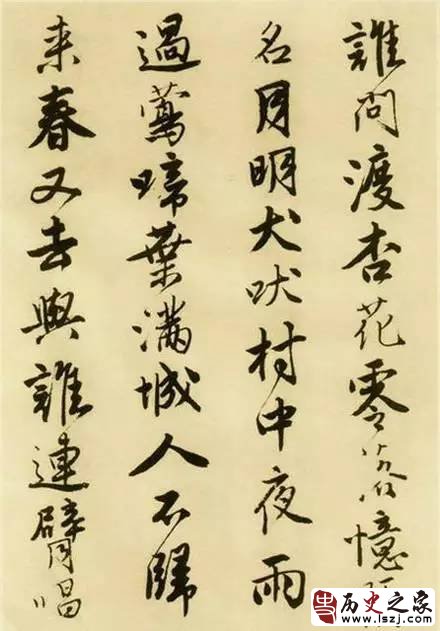 誰問渡杏花零落憶
名月明犬吠村中夜雨
過鶯啼葉滿城人不歸
来春又去與誰連臂唱
史 历史之家
www.lszj.com